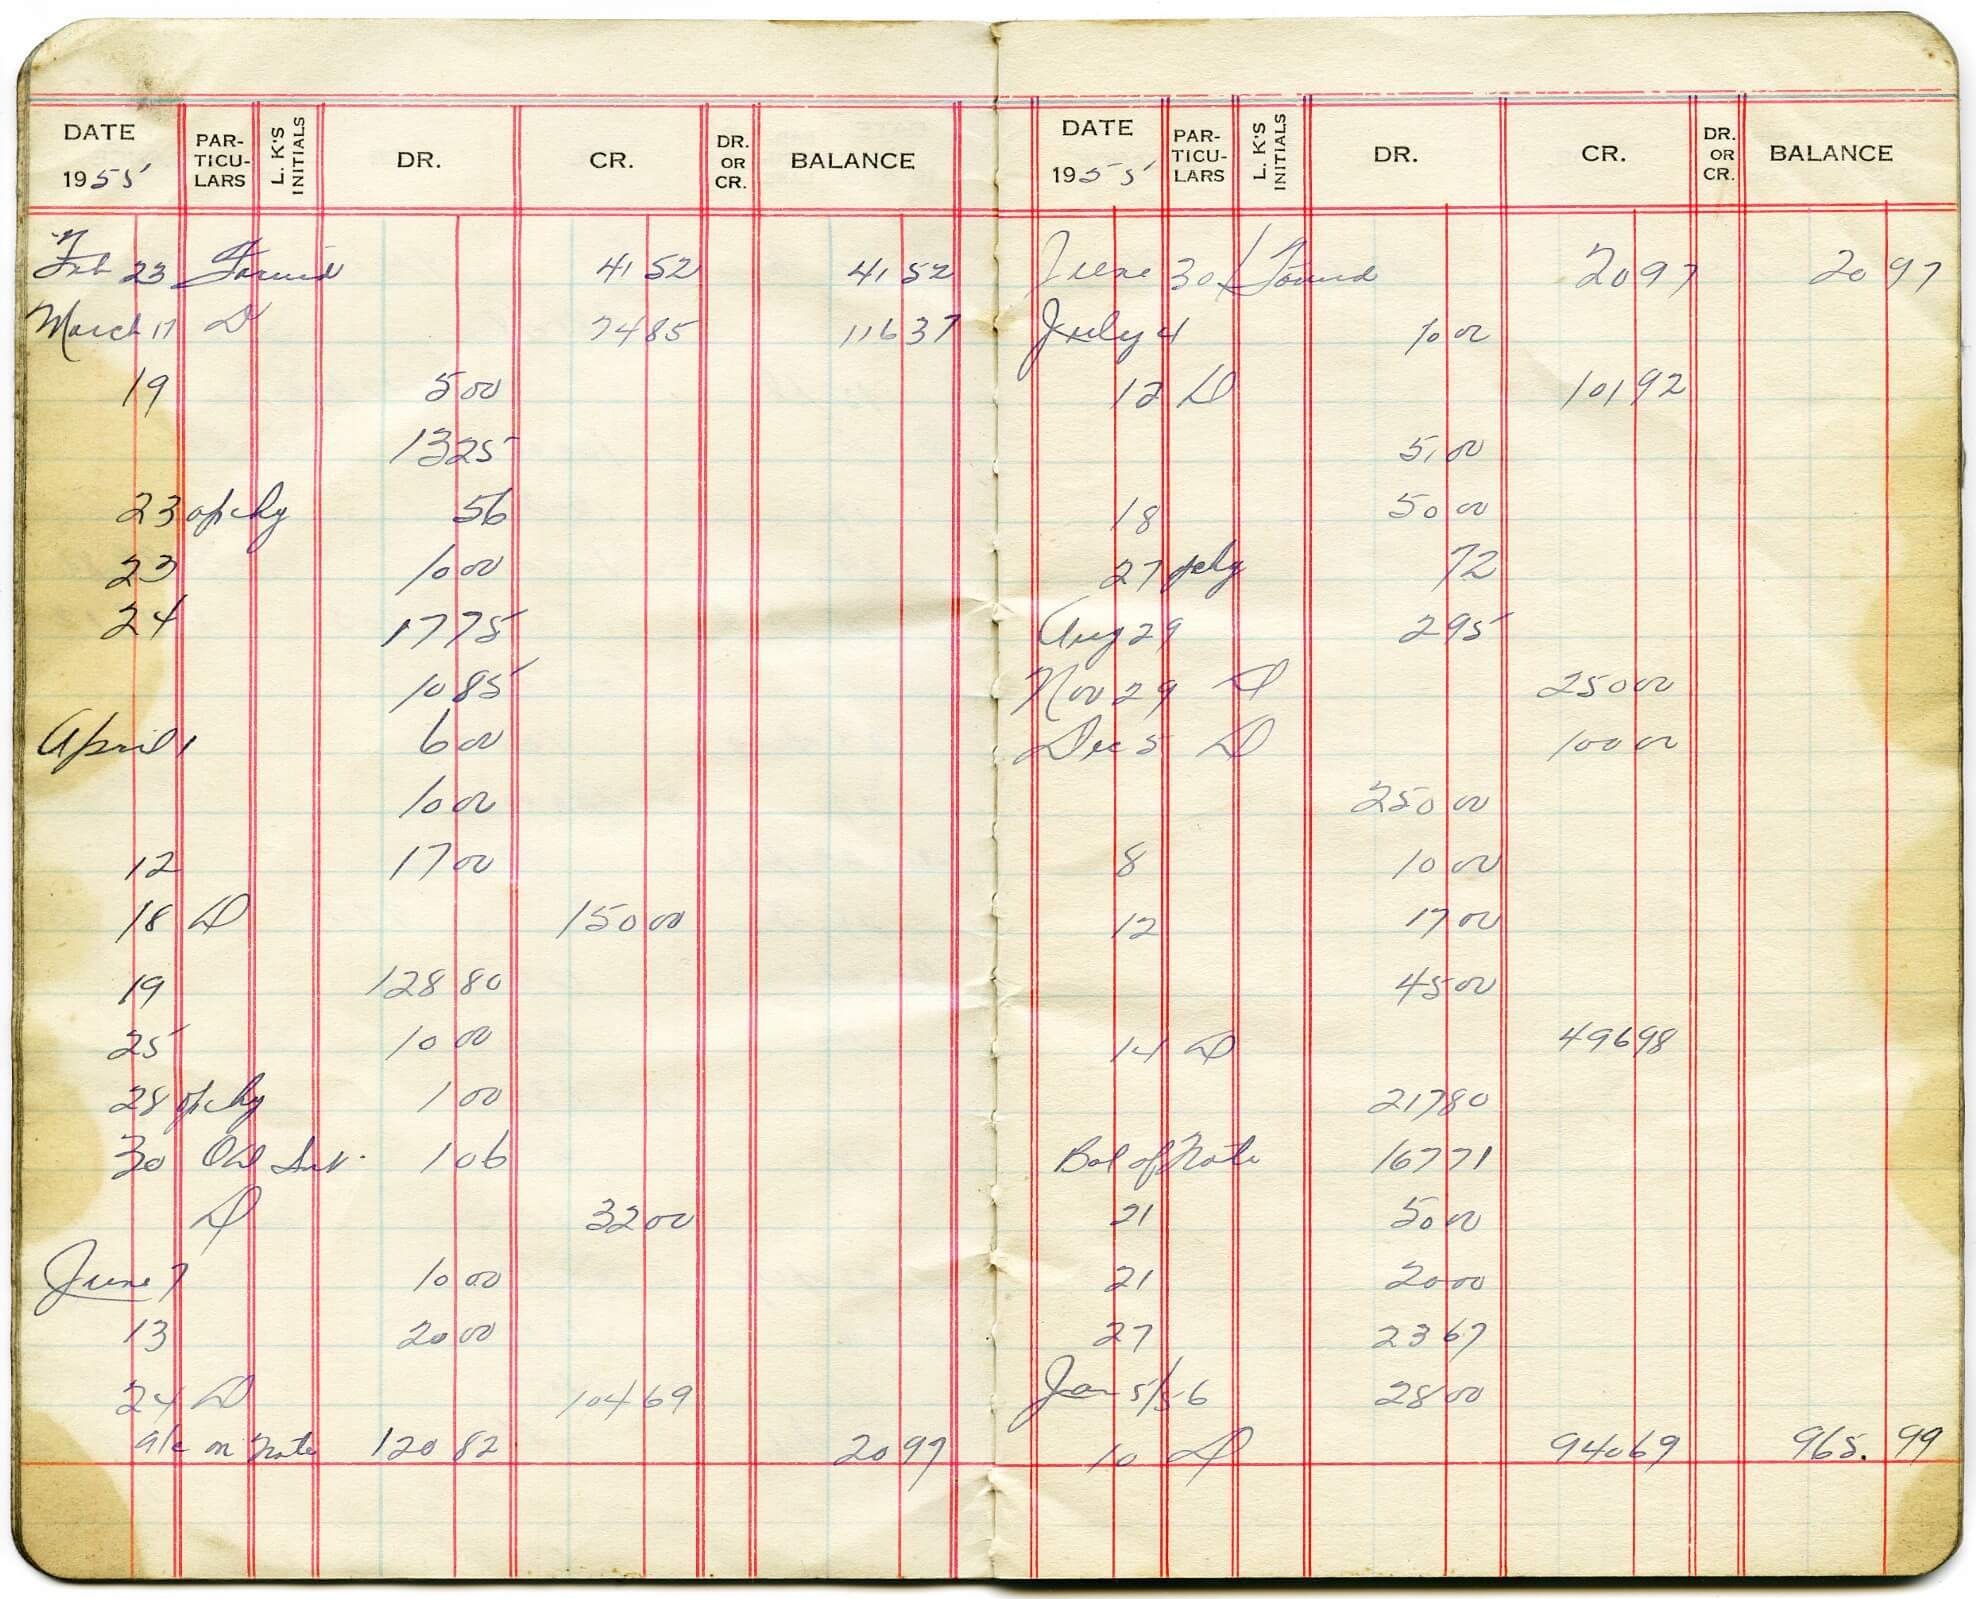 DATE 1955 PAR-TICU-LARS L. K'S INITIALS DR. CR. DR. OR CR. BALANCE
Feb 23 Forwd 41 52 41 52
March 17 D 74 85 116 37
19 5 00
13 25
23 op chg 56
23 10 00
24 17 75
10 85
April 1 6 00
10 00
12 17 00
18 D 150 00
19 128 80
25 10 00
28 op chg 1 00
30 Int. 1 06
D 32 00
June 7 10 00
13 20 00
24 D 104 69
a/c on Note 120 82 20 97
DATE 1955 PAR-TICU-LARS L. K'S INITIALS DR. CR. DR. OR CR. BALANCE
June 30 Forwd 20 97 20 97
July 4 10 00
12 D 101 92
51 00
18 50 00
27 chg 72
Aug 29 2 95
Nov 29 D 250 00
Dec 5 D 100 00
250 00
8 10 00
12 17 00
45 00
14 D 496 98
217 80
Bal of Note 167 71
21 50 00
21 20 00
27 23 67
Jan 5/56 28 00
10 D 940 69 965. 99